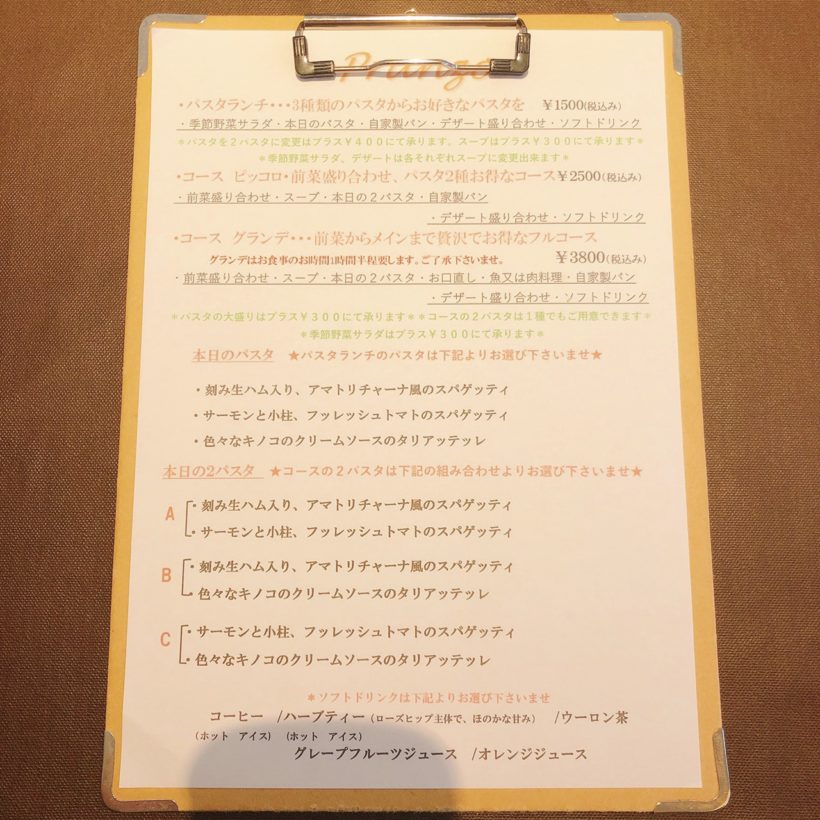 Pranzo
・パスタランチ・・・3種類のパスタからお好きなパスタを ￥1500(税込み)
・季節野菜サラダ・本日のパスタ・自家製パン・デザート盛り合わせ・ソフトドリンク
＊パスタを２パスタに変更はプラス￥４００にて承ります。スープはプラス￥３００にて承ります＊
＊季節野菜サラダ、デザートは各それぞれスープに変更出来ます＊
・コース ピッコロ・前菜盛り合わせ、パスタ2種お得なコース￥2500(税込み)
・前菜盛り合わせ・スープ・本日の２パスタ・自家製パン
・デザート盛り合わせ・ソフトドリンク
・コース グランデ・・・前菜からメインまで贅沢でお得なフルコース
グランデはお食事のお時間1時間半程要します。ご了承下さいませ。 ￥3800(税込み)
・前菜盛り合わせ・スープ・本日の２パスタ・お口直し・魚又は肉料理・自家製パン
・デザート盛り合わせ・ソフトドリンク
＊パスタの大盛りはプラス￥３００にて承ります＊＊コースの２パスタは１種でもご用意できます＊
＊季節野菜サラダはプラス￥３００にて承ります＊
本日のパスタ ★パスタランチのパスタは下記よりお選び下さいませ★
・刻み生ハム入り、アマトリチャーナ風のスパゲッティ
・サーモンと小柱、フッレッシュトマトのスパゲッティ
・色々なキノコのクリームソースのタリアッテッレ
本日の2パスタ ★コースの２パスタは下記の組み合わせよりお選び下さいませ★
A
・刻み生ハム入り、アマトリチャーナ風のスパゲッティ
・サーモンと小柱、フッレッシュトマトのスパゲッティ
B
・刻み生ハム入り、アマトリチャーナ風のスパゲッティ
・色々なキノコのクリームソースのタリアッテッレ
C
・サーモンと小柱、フッレッシュトマトのスパゲッティ
・色々なキノコのクリームソースのタリアッテッレ
＊ソフトドリンクは下記よりお選び下さいませ
コーヒー /ハーブティー（ローズヒップ主体で、ほのかな甘み） /ウーロン茶
（ホット アイス） （ホット アイス）
グレープフルーツジュース /オレンジジュース